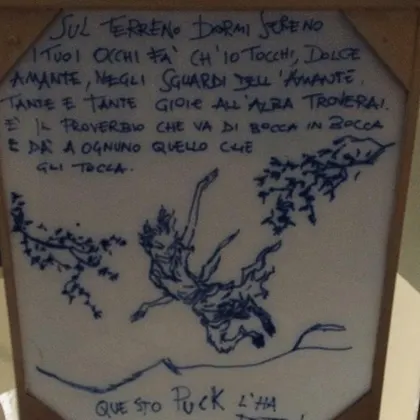 SUL TERRENO DORMI SERENO
I TUOI OCCHI FA' CH'IO TOCCHI, DOLCE
AMANTE, NEGLI SGUARDI DELL'AMANTE.
TANTE E TANTE GIOIE ALL'ALBA TROVERAI.
E' IL PROVERBIO CHE VA DI BOCCA IN BOCCA
E DÀ A OGNUNO QUELLO CHE
GLI TOCCA.
QUESTO PUCK L'HA